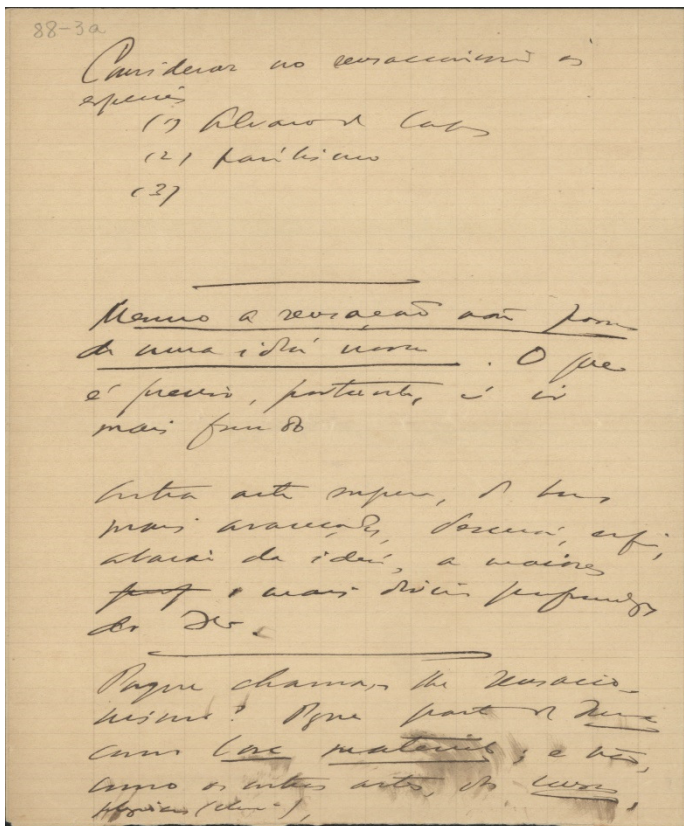 88-3a
Considerar no sensacionismo as
especies
(1) Alvaro de Campos
(2) paúlismo
(3)
Mesmo a sensação não passa
de uma idéa nossa. O que
é preciso, portanto, é ir
mais fundo
Outra arte supera, de tempos
mais avançados, descerá, enfim,
abaixo da idéa, a maiores
prof e mais divinas profundezas
do Ser.
Porque chamar-lhe sensacio-
nismo? Porque parte de
como base material; e não,
como os outros artes, de